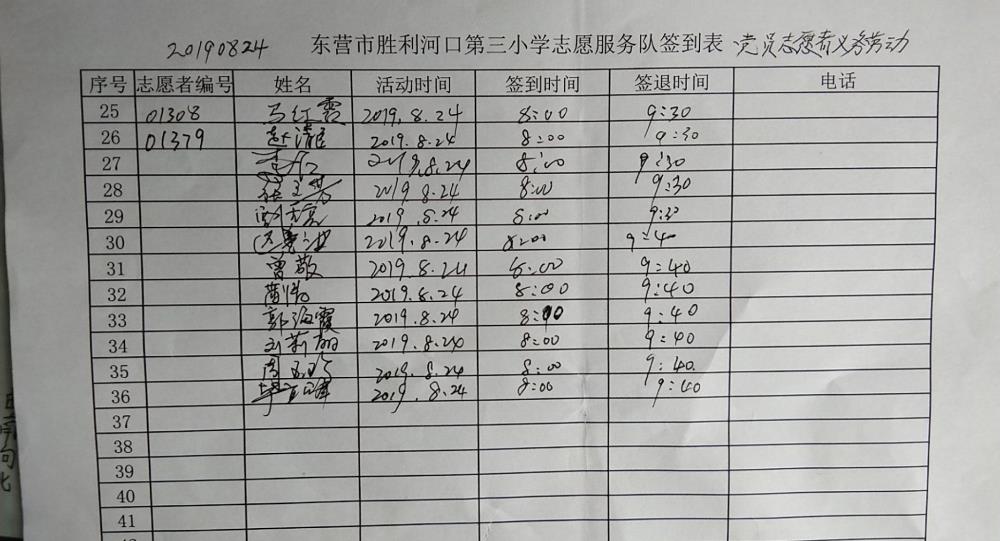 20190824 东营市胜利河口第三小学志愿服务队签到表 党员志愿者义务劳动
序号 志愿者编号 姓名 活动时间 签到时间 签退时间 电话
25 01308 马红霞 2019.8.24 8:00 9:30
26 01379 赵清 2019.8.24 8:00 9:30
27 2019.8.24 8:00 9:30
28 2019.8.24 8:00 9:30
29 2019.8.24 8:00 9:30
30 2019.8.24 8:00 9:40
31 曾敬 2019.8.24 8:00 9:40
32 2019.8.24 8:00 9:40
33 郭海霞 2019.8.24 8:00 9:40
34 刘莉丽 2019.8.24 8:00 9:40
35 2019.8.24 8:00 9:40
36 2019.8.24 8:00 9:40
37
38
39
40
41